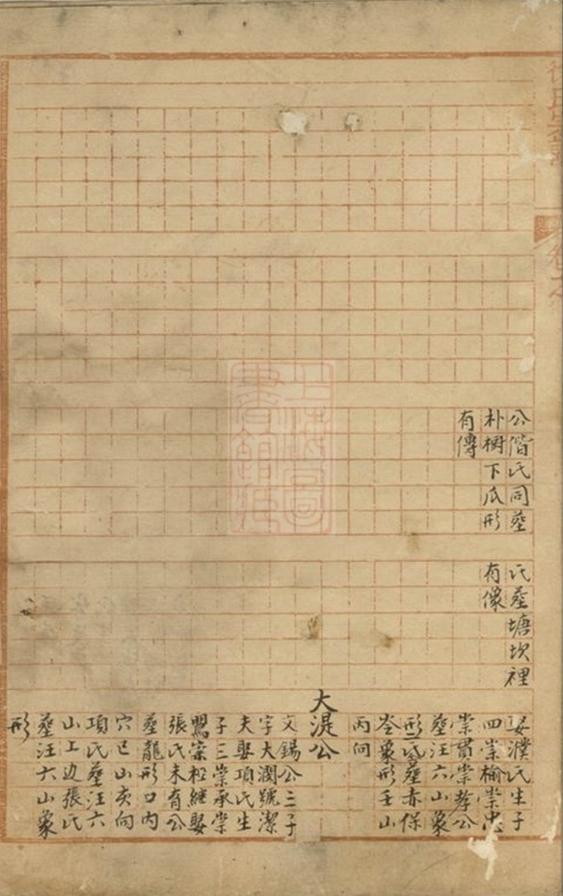 公偕氏同塟
朴樹下瓜形
有傳
氏塟塘坎裡
有像
娶濮氏生子
四崇榆崇忠
崇貫崇孝公
塟汪六山象
形氏塟赤保
岺象形壬山
丙向
大湜公
文錫公三子
字大潤號潔
夫娶項氏生
子三崇承崇
崇松繼娶
張氏未有公
塟龍形口内
穴巳山亥向
項氏塟汪六
山上边張氏
塟汪六山象
形
上海圖書館藏